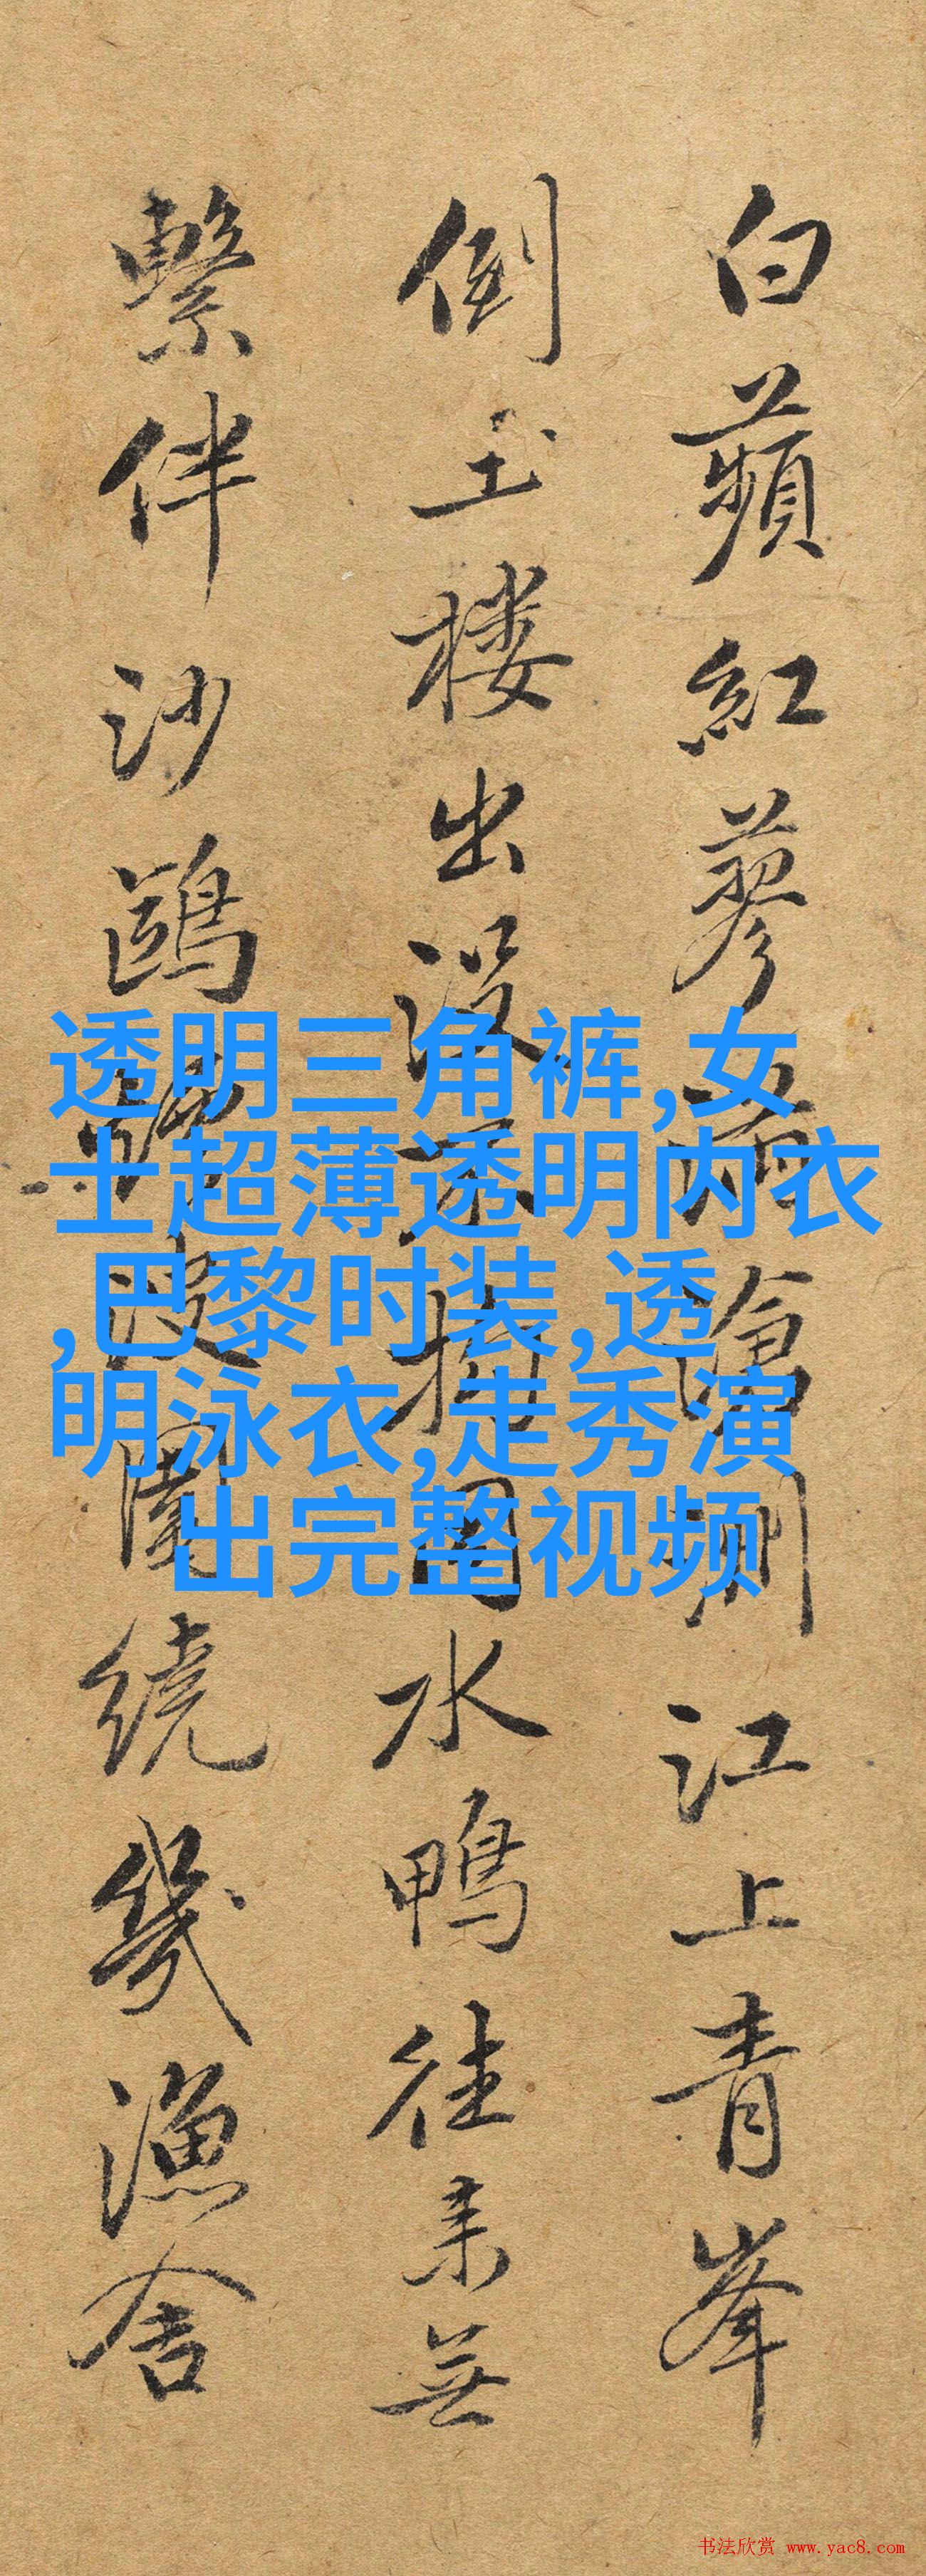 白蘋紅蓼滄洲江上青峯
倒玉楼出没不水鴨往来無
繫伴沙鷗波圍繞幾漁舍
透明三角裤,女
士超薄透明内衣
,巴黎时装,透
明泳衣,走秀演
出完整视频
书法欣赏 www.yac8.com